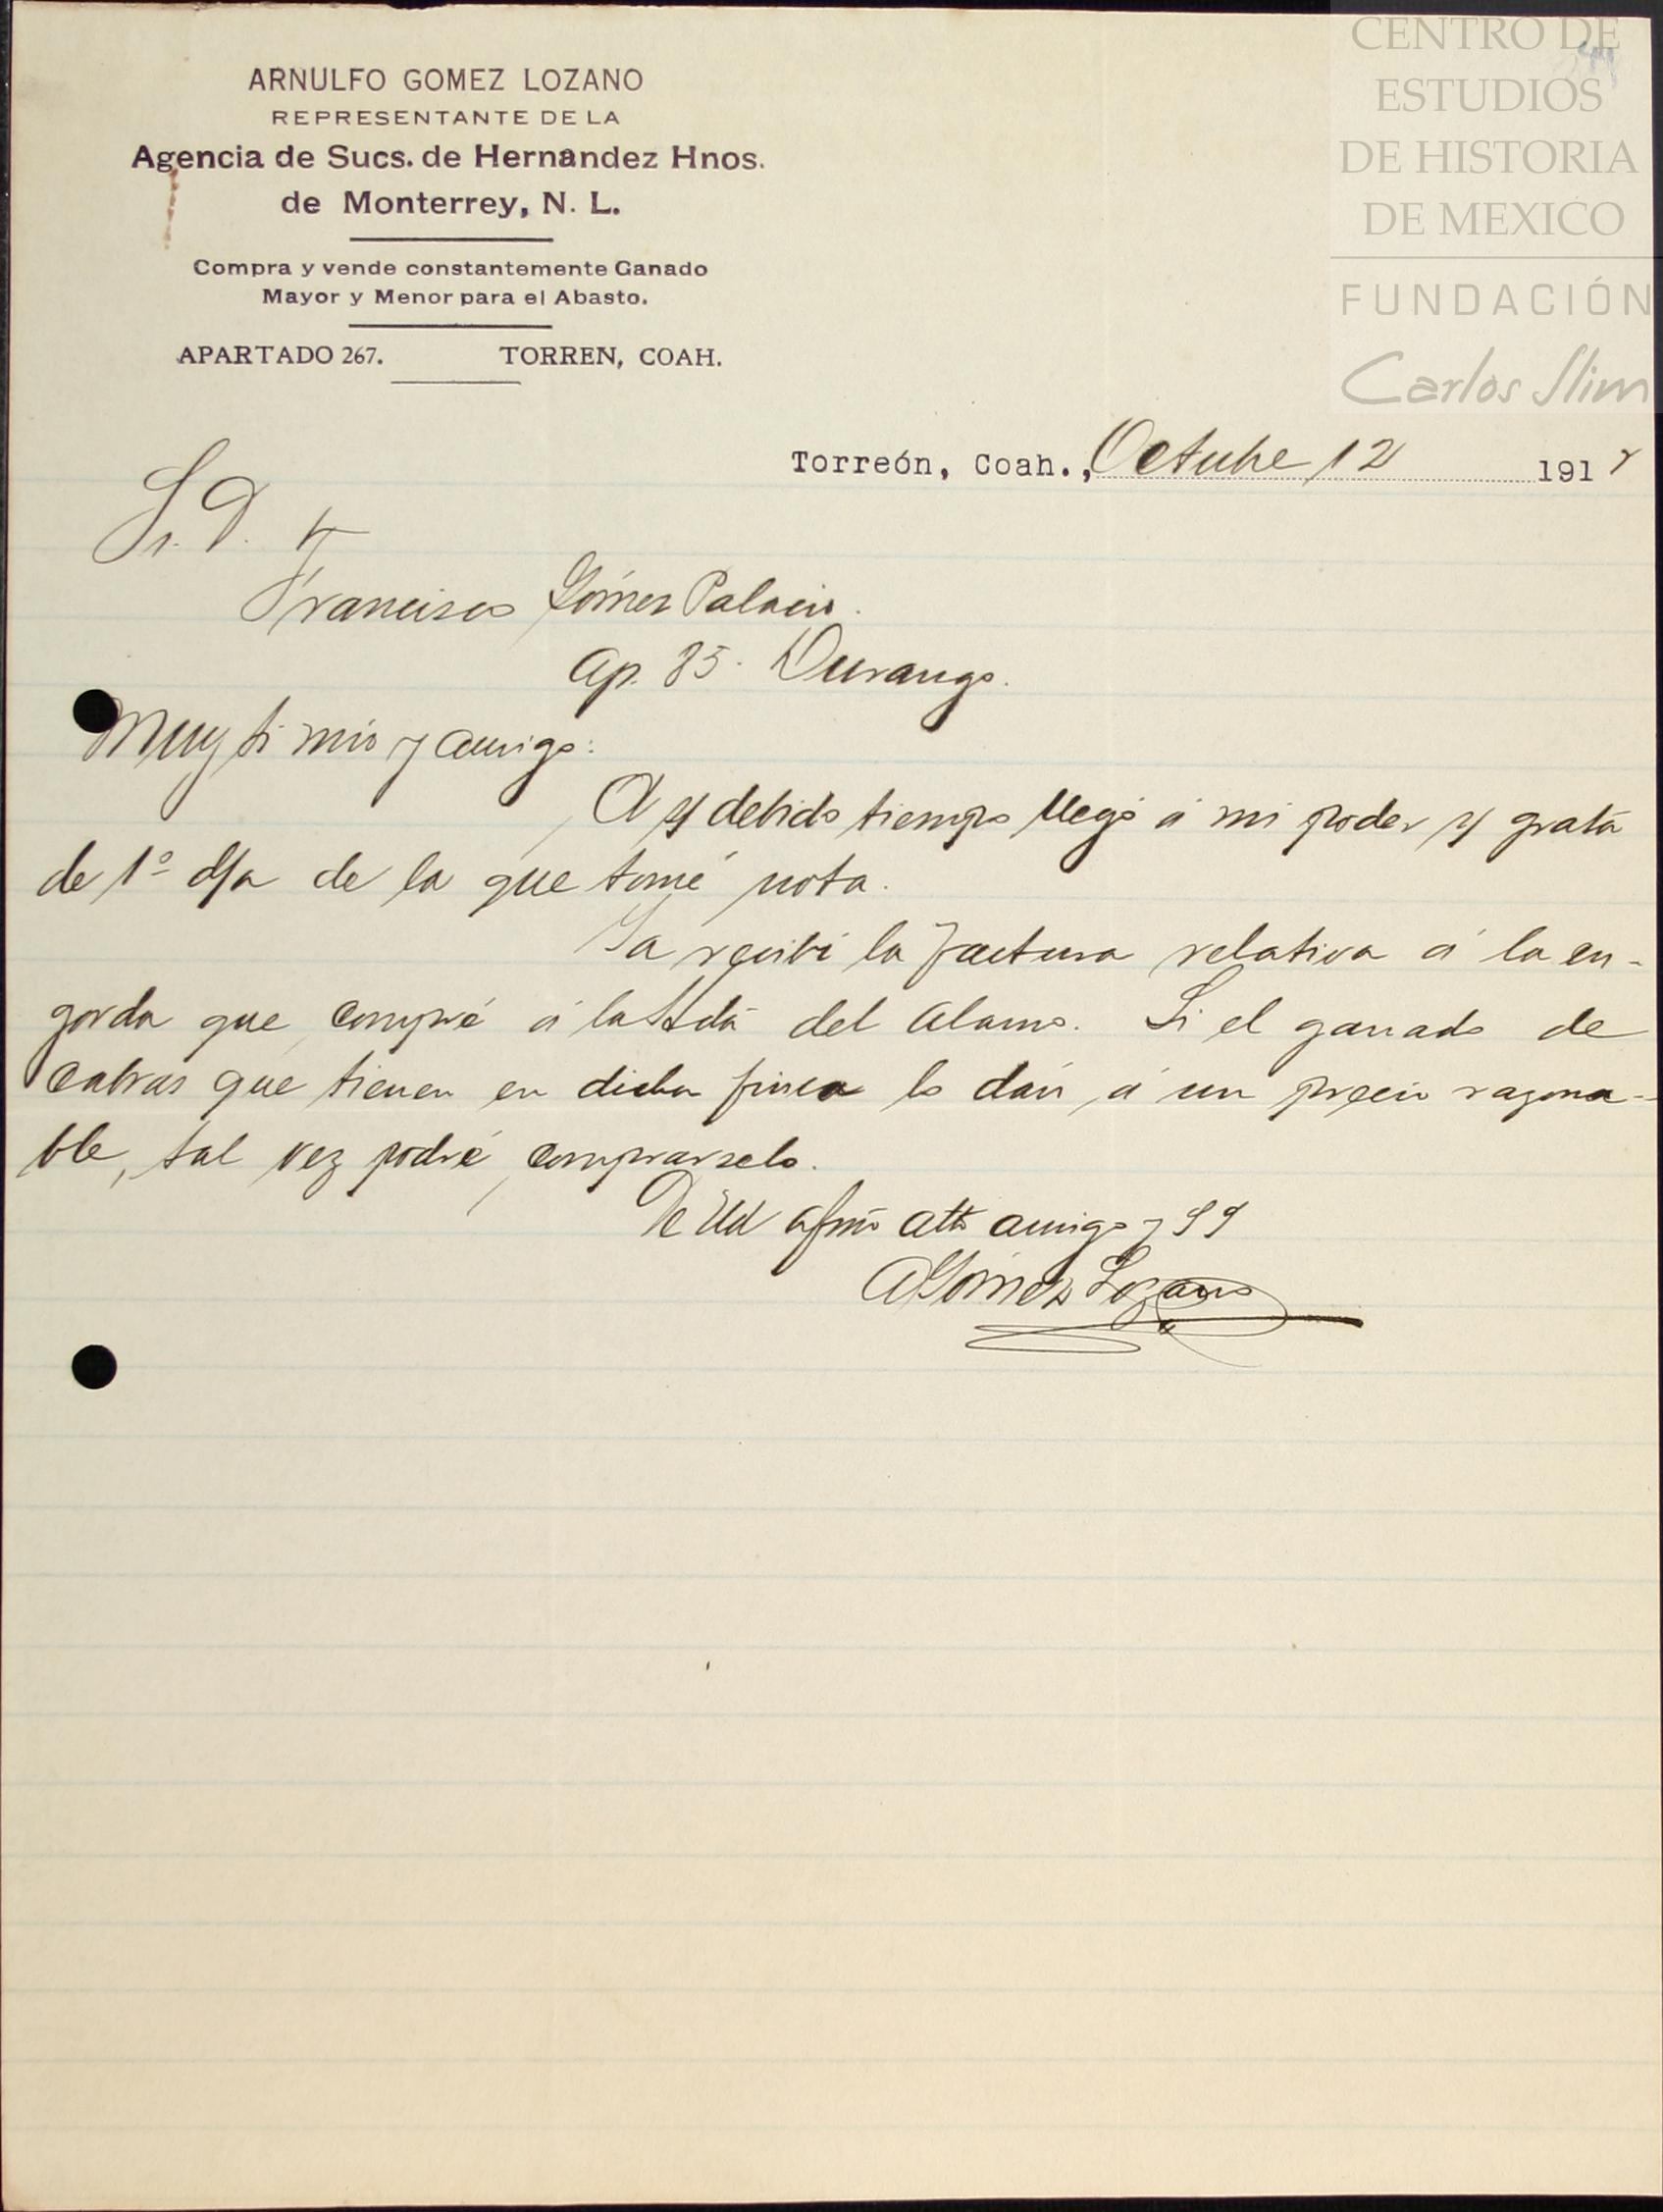 CENTRO DE
ESTUDIOS
DE HISTORIA
DE MEXICO
FUNDACIÓN
Carlos Slim
ARNULFO GOMEZ LOZANO
REPRESENTANTE DE LA
Agencia de Sucs. de Hernandez Hnos.
de Monterrey, N. L.
Compra y vende constantemente Ganado
Mayor y Menor para el Abasto.
APARTADO 267. TORREN, COAH.
Torreón, Coah., Octubre 12 191
Sr. D.
Francisco Gómez Palacio.
Ap. 85. Durango.
Muy Sr mio y amigo:
A debido tiempo llegó á mi poder grata
de 1º de la que tomé nota.
Ya recibí la factura relativa á la en-
gorda que compré á la Hda del Alamo. Si el ganado de
cabras que tienen en dicha finca lo dán á un precio razona-
ble, tal vez podré comprarselo.
De Ud afmo atto amigo y SS
A Gómez Lozano